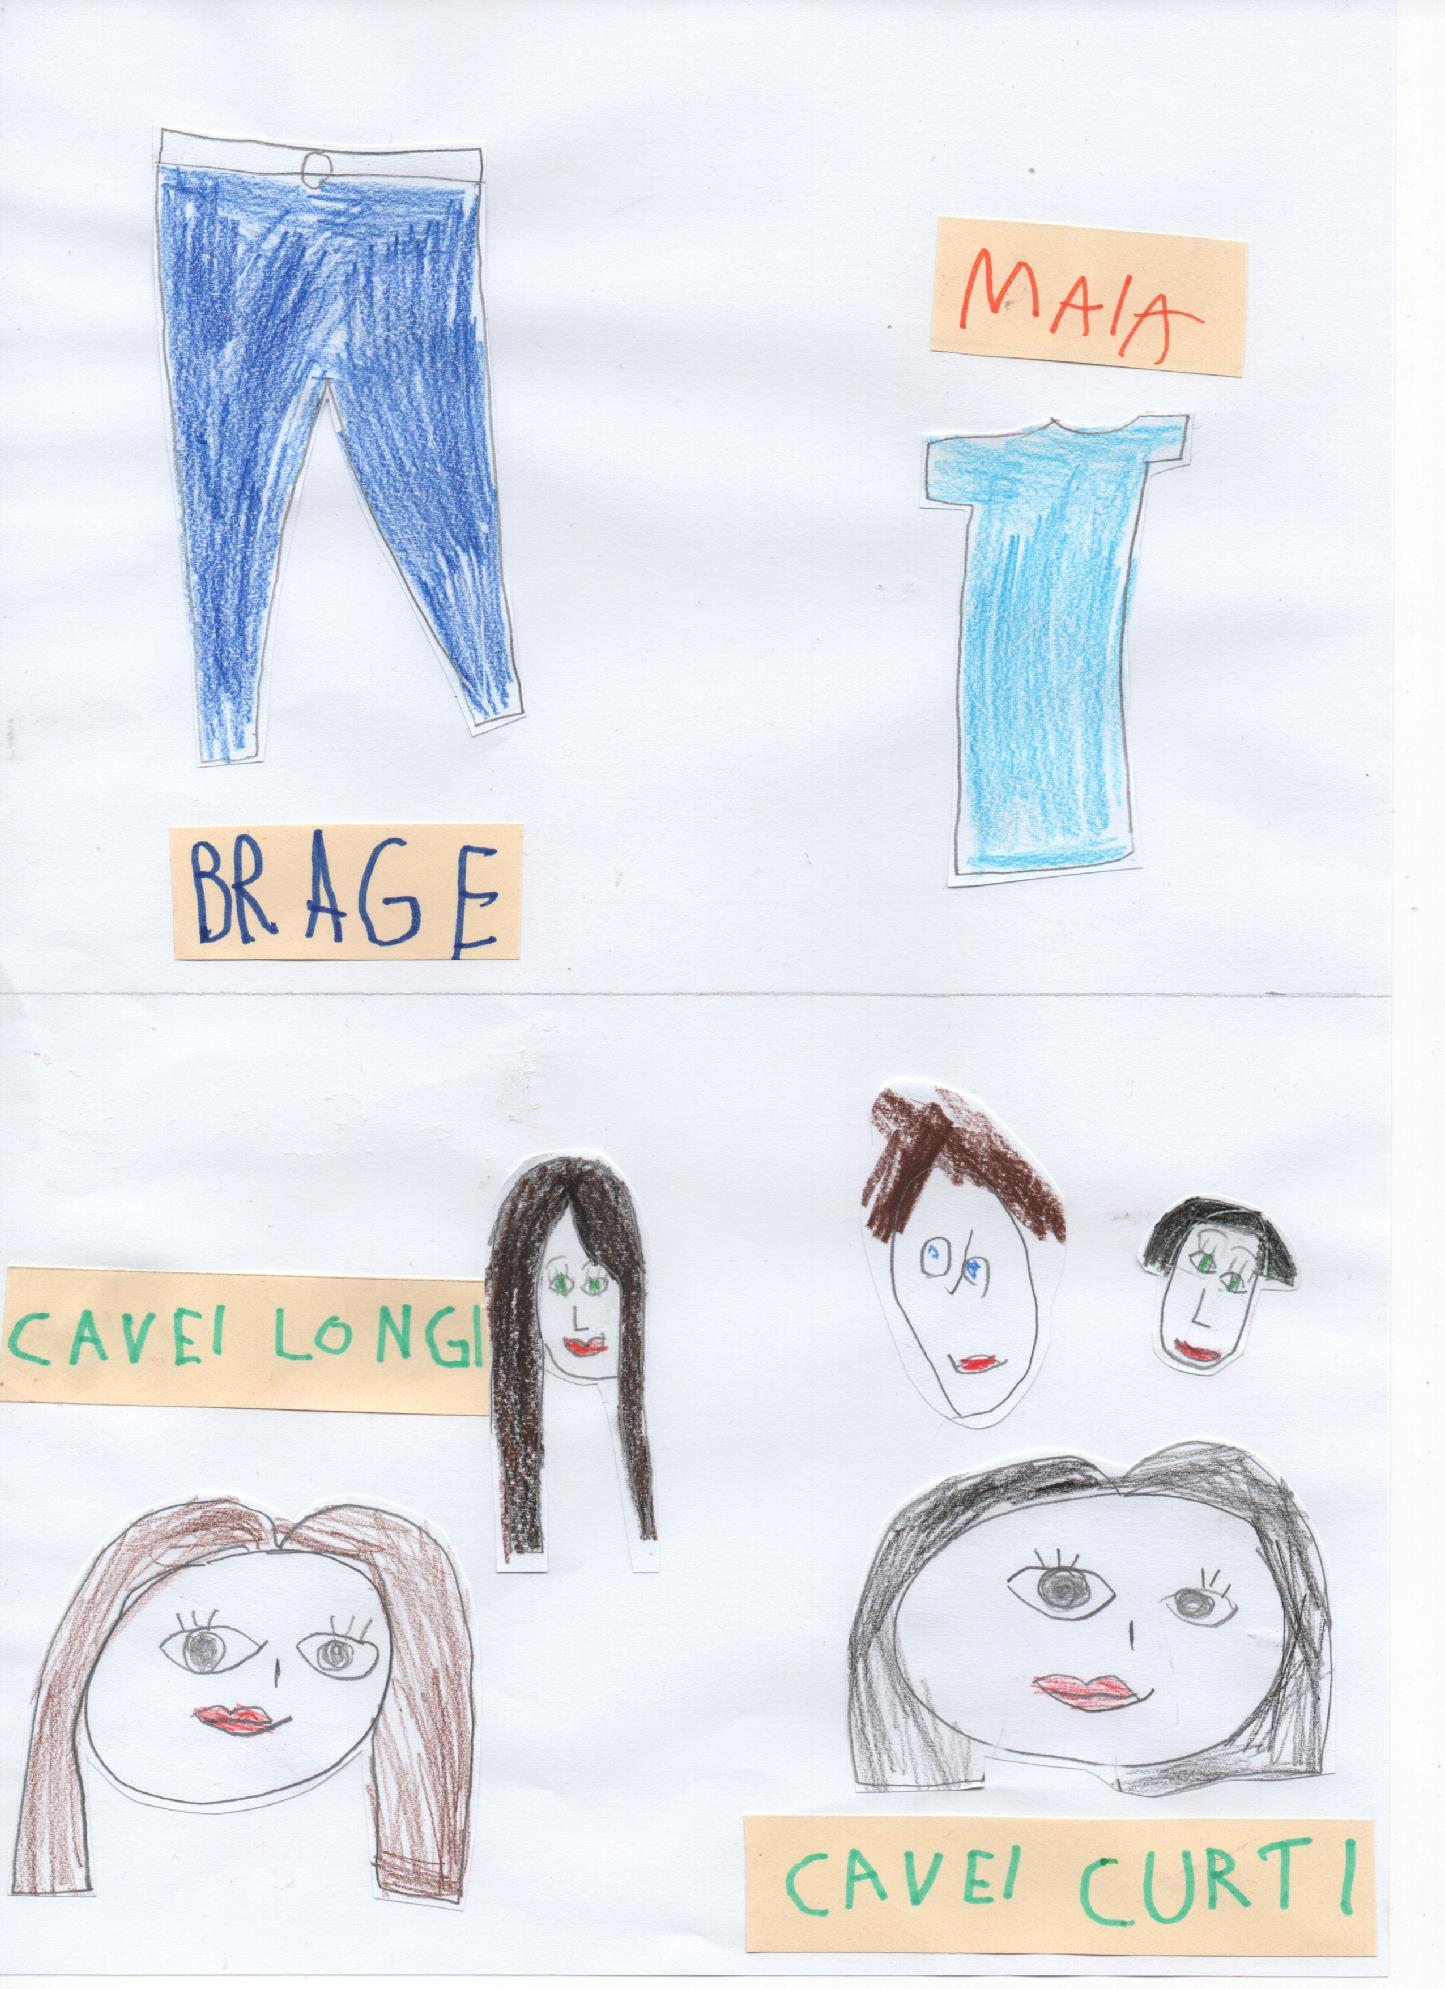 MAIA
BRAGE
CAVEI LONGI
CAVEI CURTI